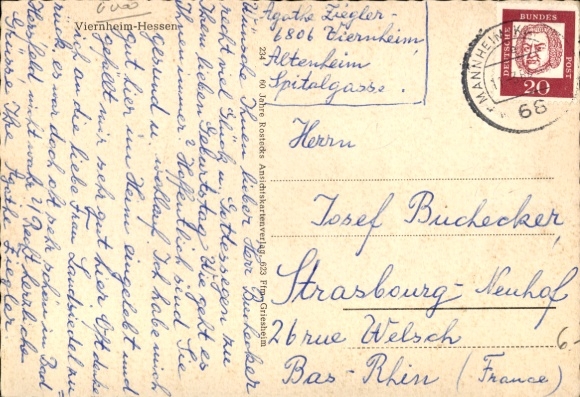 Viernheim-Hessen
Agathe Ziegler-
6806 Viernheim
Altenheim
Spitalgasse.
MANNHEIM
68
DEUTSCHE BUNDES POST
20
234
60 Jahre Rostocks Ansichtskartenverlag, 623 Ffm.-Griesheim
Herrn
Josef Buchecker
Strasbourg-Neuhof
26 rue Welsch
Bas-Rhin (France)
6-
Wünsche Ihnen lieber Herr Buchecker
recht viel Glück u. Gottessegen zu
Ihrem lieben Geburtstag. Wie geht es
Ihnen immer? Hoffentlich sind Sie
gesund u. wohlauf. Ich habe mich
gut hier im Heim eingelebt und
gefällt mir sehr gut hier. Oft denke
ich an die liebe Frau Landsiedel zu-
rück, es war doch oft sehr schön in Bad-
Hersfeld nicht wahr? Recht herzliche
Grüsse! Ihre Agathe Ziegler